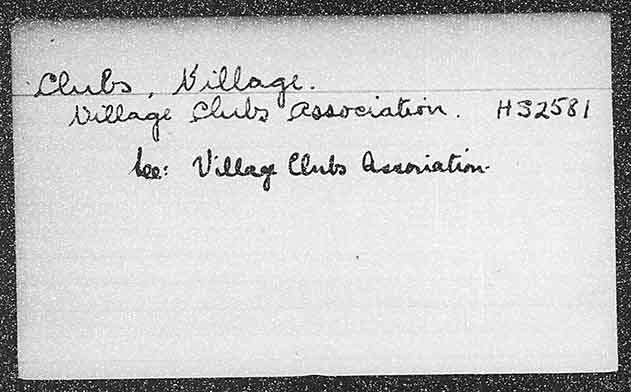 Clubs, Village.
Village Clubs Association. HS2581
See: Village Clubs Association.